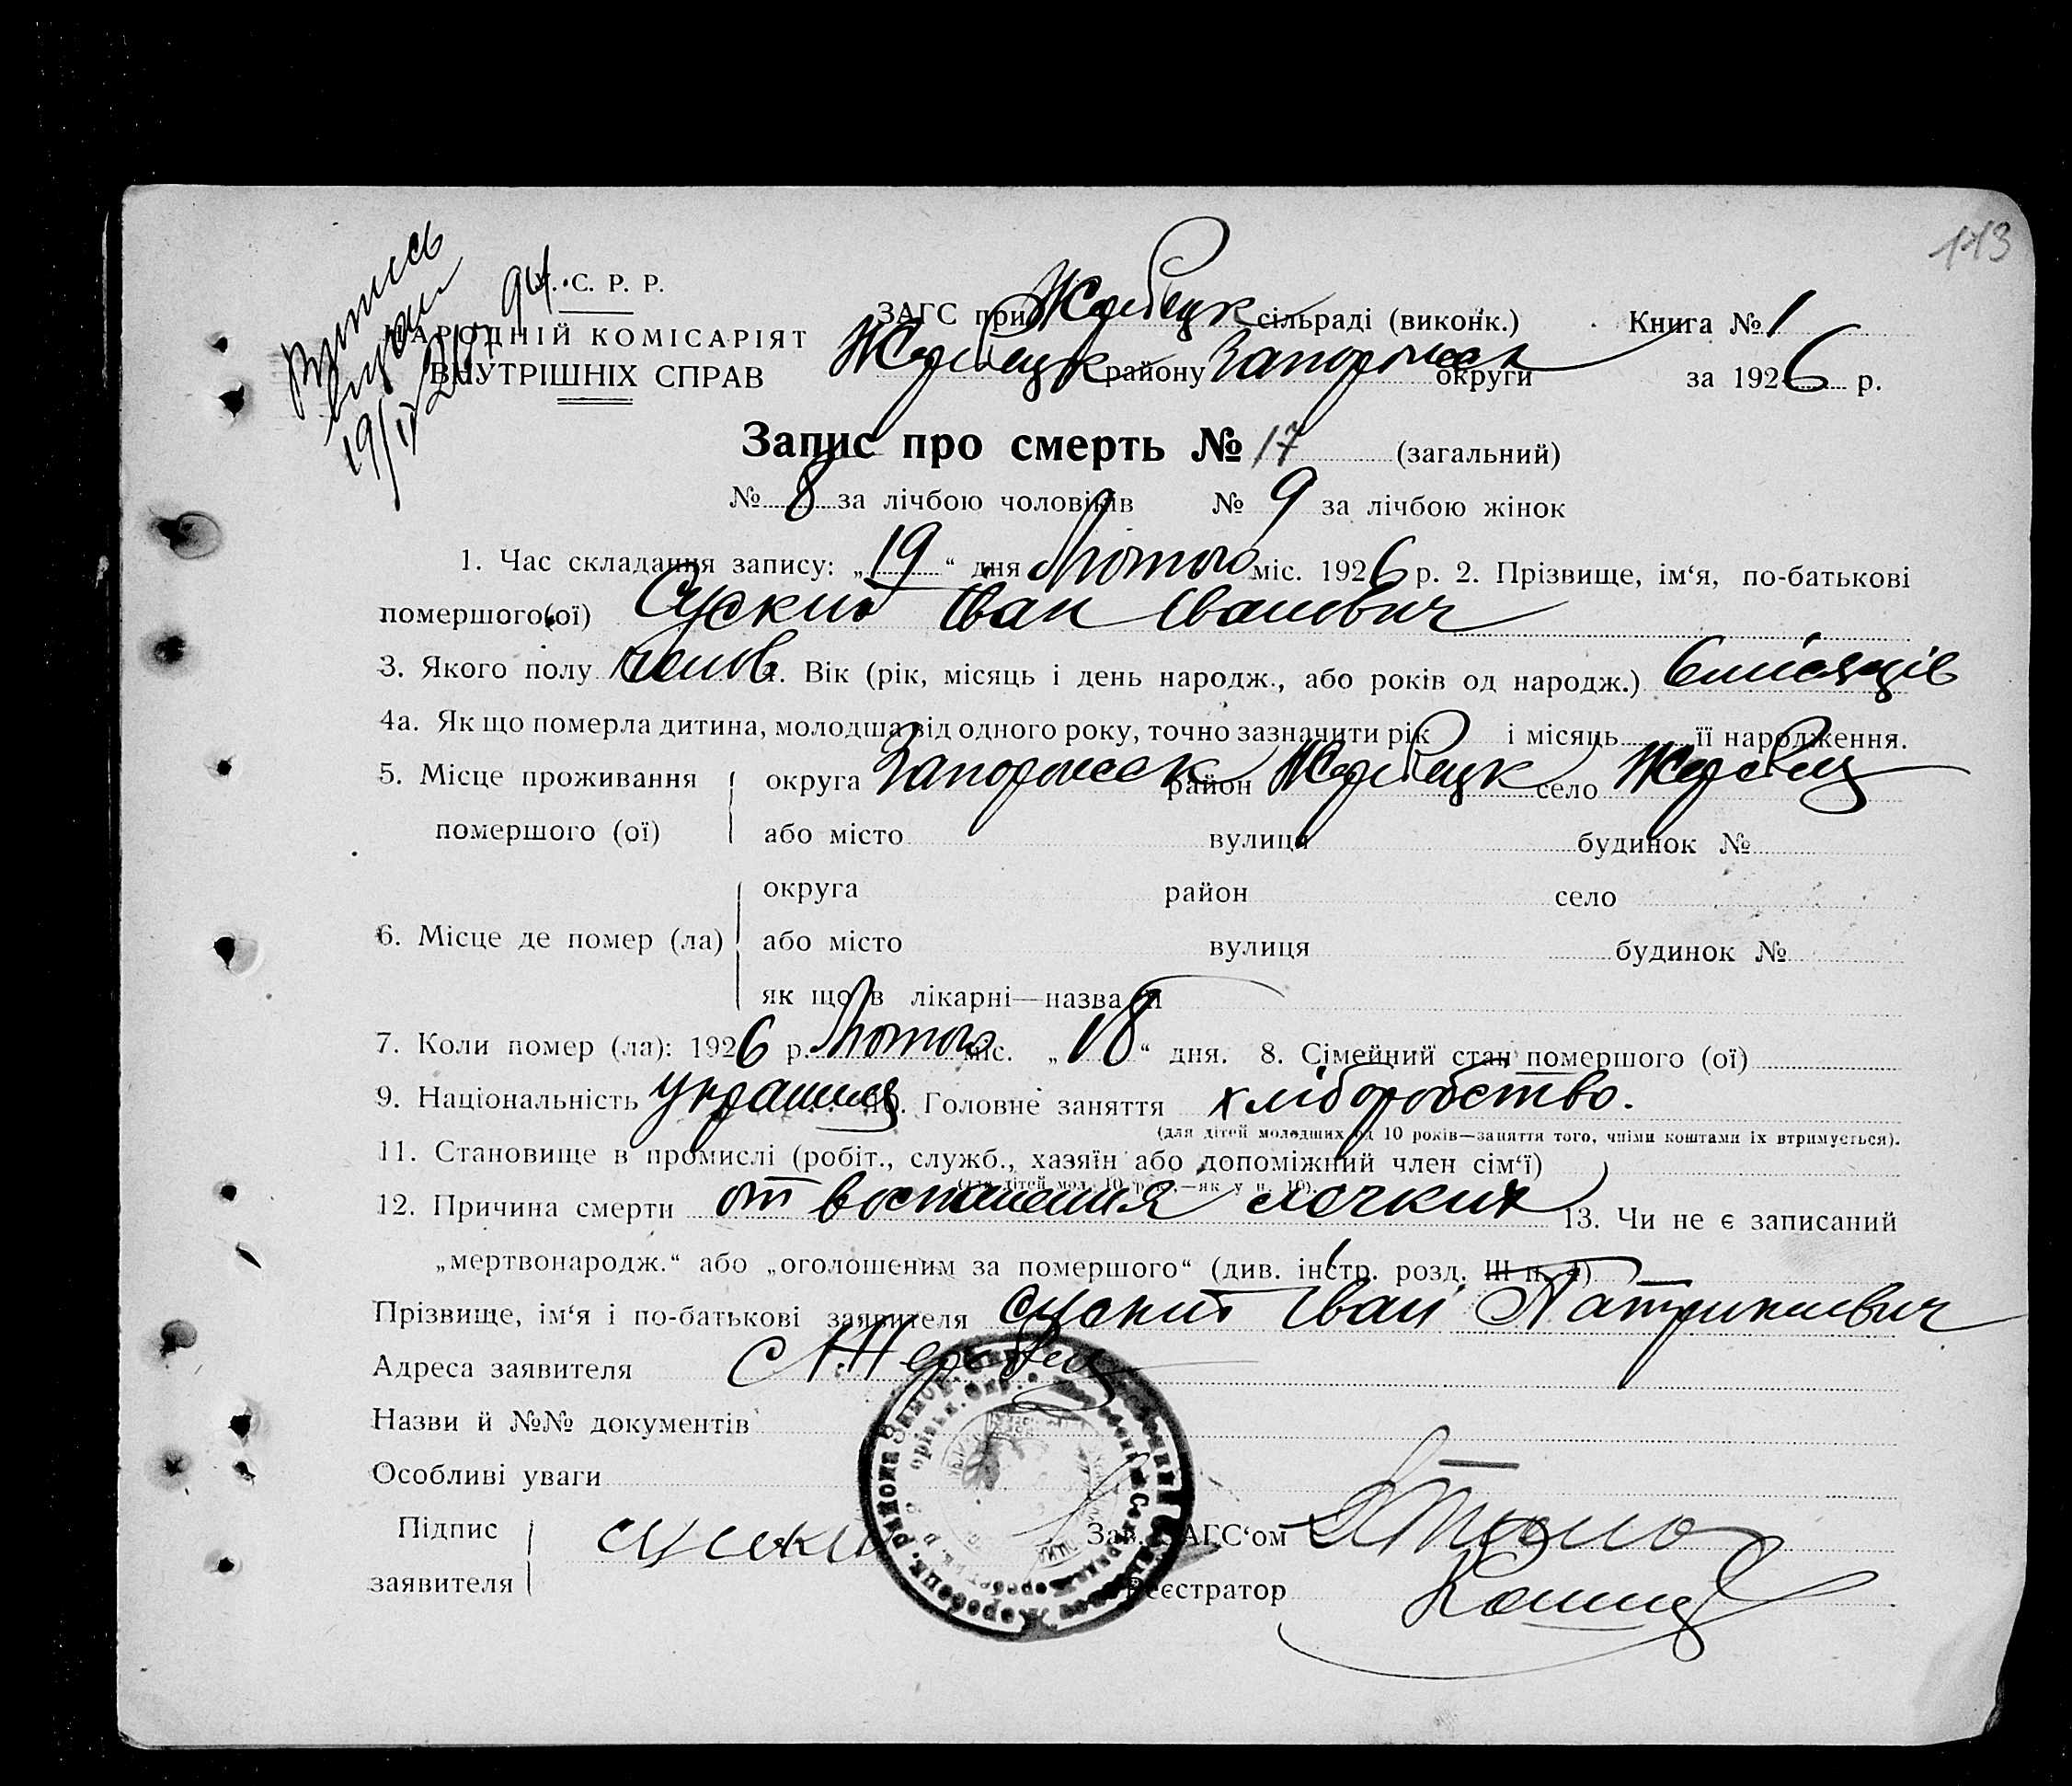 113
У. С. Р. Р.
НАРОДНІЙ КОМІСАРІЯТ
ВНУТРІШНІХ СПРАВ
Випись
19/II
ЗАГС при Жеребецк сільраді (виконк.) Книга № 1
Жеребецк району Запорожск округи за 1926 р.
Запис про смерть № 17 (загальний)
№ 8 за лічбою чоловіків № 9 за лічбою жінок
1. Час складання запису: „19“ дня Лютого міс. 1926 р. 2. Прізвище, ім‘я, по-батькові
помершого(ої) Суский Іван Іванович
3. Якого полу чолов. 4. Вік (рік, місяць і день народж., або років од народж.) 6 місяців
4а. Як що померла дитина, молодша від одного року, точно зазначити рік і місяць її народження.
5. Місце проживання округа Запорожск район Жеребецк село Жеребец
помершого (ої) або місто вулиця будинок №
округа район село
6. Місце де помер (ла) або місто вулиця будинок №
як що в лікарні—назва її
7. Коли помер (ла): 1926 р. Лютого міс. „18“ дня. 8. Сімейний стан помершого (ої)
9. Національність украинец 10. Головне заняття хліборобство.
(для дітей молодших од 10 років—заняття того, чиїми коштами їх втримується).
11. Становище в промислі (робіт., служб., хазяїн або допоміжний член сім‘ї)
(для дітей мол. 10 рок.,—як у п. 10).
12. Причина смерти от воспаления легких 13. Чи не є записаний
„мертвонародж.“ або „оголошеним за помершого“ (див. інстр. розд. III п. 4)
Прізвище, ім‘я і по-батькові заявителя Суский Іван Патрикиевич
Адреса заявителя с Жеребец
Назви й №№ документів
Особливі уваги
Підпис
заявителя
Зав. ЗАГС‘ом
Реєстратор